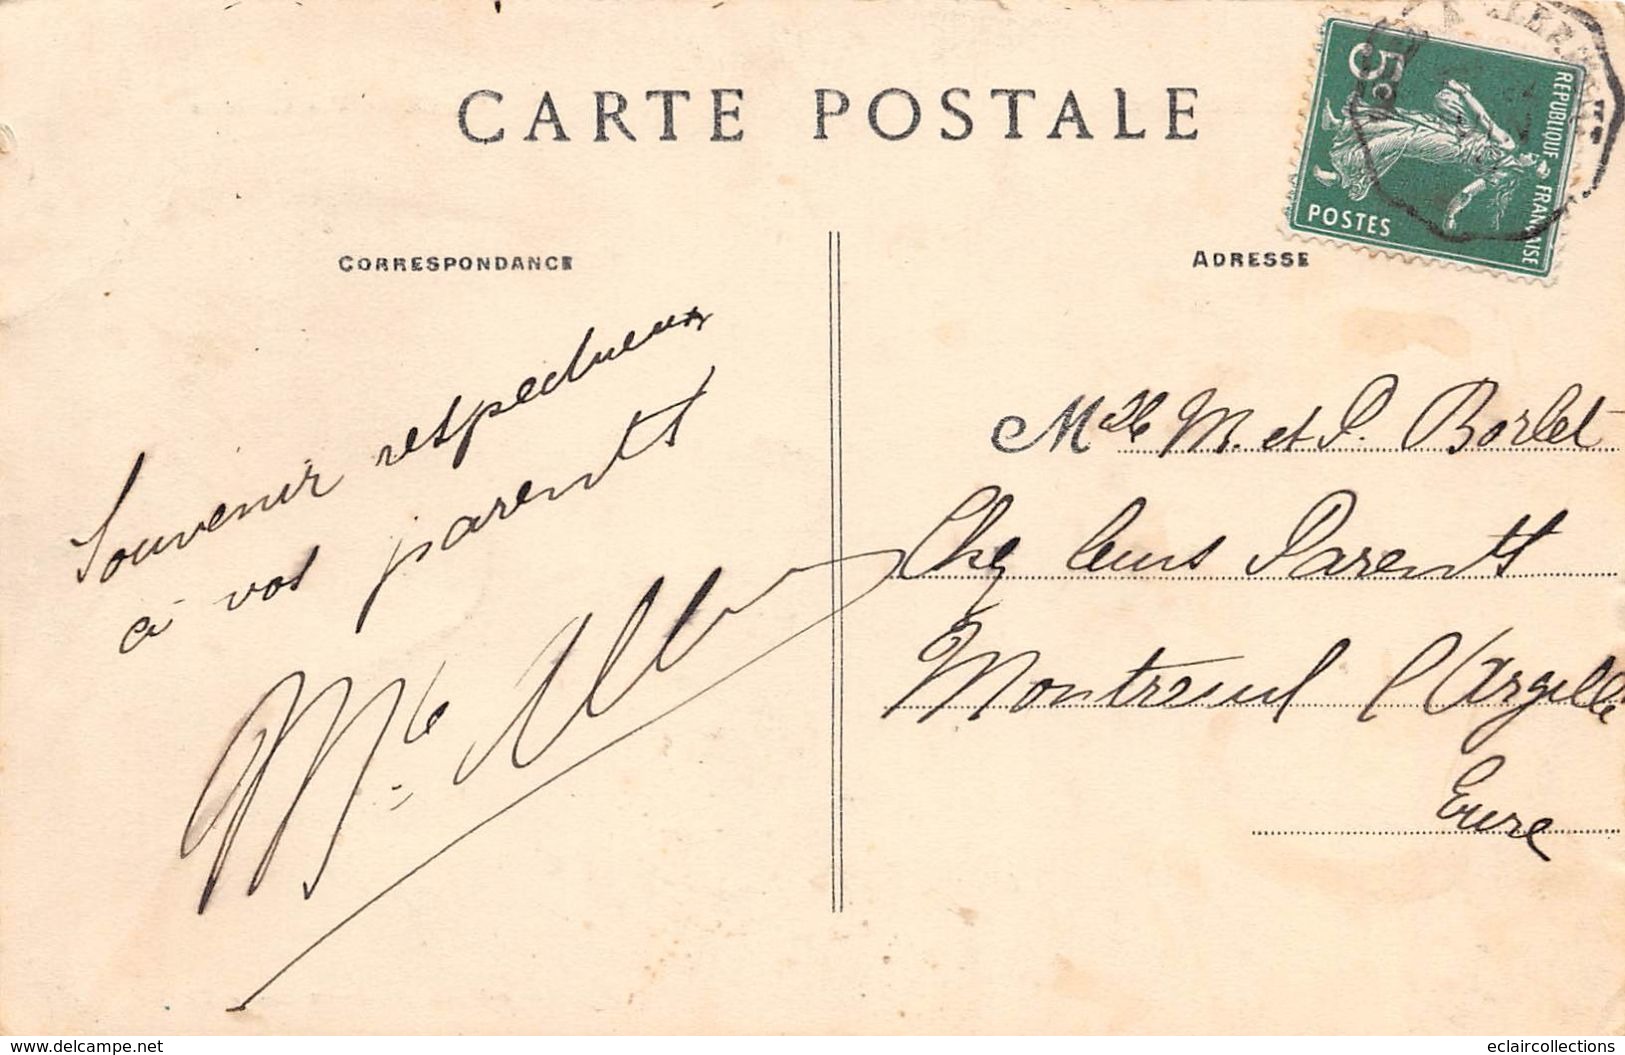 CARTE POSTALE
5c
REPUBLIQUE FRANÇAISE
POSTES
CORRESPONDANCE
ADRESSE
Souvenir respectueux
à vos parents
Mlle M. et P. Borlet
Chez leurs Parents
Montreuil l'Argillé
Eure
delcampe.net
eclaircollections